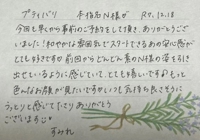 プライベリ 手指品N様が R7.12.18
今回も早くから事前の予約をして頂き、ありがとうござ
いました!和やかな雰囲気でスタートできるあの安心感が
とても好きですが前回からどんどん素のN様の姿を引き
出せているように感じていて、とても嬉しいです♪もっと
色んなお顔が見たいですね♡いつも気持ち良さそうに
うっとりと感じて下さりありがとう
ございます♡
すみれ